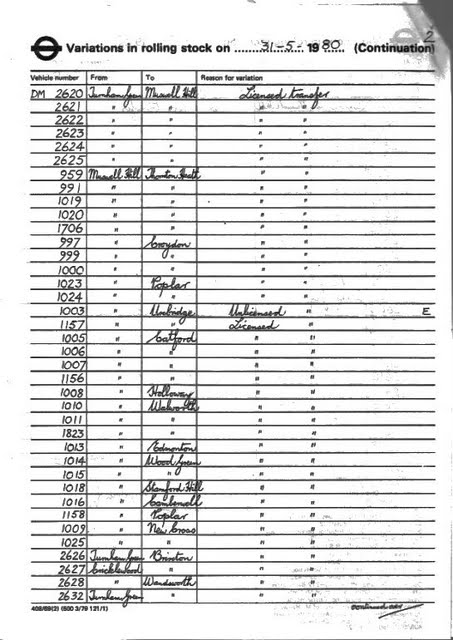 2
Variations in rolling stock on 31-5- 1980 (Continuation)
Vehicle number From To Reason for variation
DM 2620 Turnham Green Muswell Hill Licensed transfer
2621 " " " "
2622 " " " "
2623 " " " "
2624 " " " "
2625 " " " "
959 Muswell Hill Thornton Heath " "
991 " " " "
1019 " " " "
1020 " " " "
1706 " " " "
997 " Croydon " "
999 " " " "
1000 " " " "
1023 " Poplar " "
1024 " " " "
1003 " Uxbridge Unlicensed " E
1157 " " Licensed "
1005 " Catford " "
1006 " " " "
1007 " " " "
1156 " " " "
1008 " Holloway " "
1010 " Walworth " "
1011 " " " "
1823 " " " "
1013 " Edmonton " "
1014 " Wood Green " "
1015 " " " "
1018 " Stamford Hill " "
1016 " Camberwell " "
1158 " Poplar " "
1009 " New Cross " "
1025 " " " "
2626 Turnham Green Brixton " "
2627 Cricklewood " " "
2628 " Wandsworth " "
2632 Turnham Green " " "
409/69(2) (500 3/79 121/1) continued over